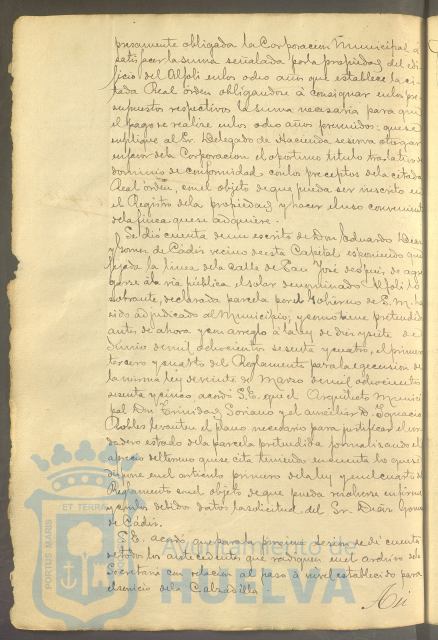 presamente obligada la Corporacion Municipal á
satisfacer la suma señalada por la propiedad del edi
ficio del Alfolí en los ocho años que establece la ci
tada Real orden obligandose á consignar en los pre
supuestos respectivos la suma necesaria para que
el pago se realice en los ocho años prevenidos: que se
suplique al Sr. Delegado de Hacienda se sirva otorgar
en favor de la Corporacion el oportuno titulo traslativo de
dominio de conformidad con los preceptos de la citada
Real orden, con el objeto de que pueda ser inscrito en
el Registro de la propiedad y hacer el uso conveniente
de la finca que se adquiere.
Se dió cuenta de un escrito de Don Eduardo Diaz
y Gomez de Cádiz vecino de esta Capital exponiendo que
fijada la linea de la calle de San José despues de agre
garse á la via pública el solar denominado Alfolí
sobrante, declarada parcela por el Gobierno de S. M. ha
sido adjudicado al Municipio; y como tiene pretendido
antes de ahora y con arreglo á la ley de diez y siete de
Junio de mil ochocientos sesenta y cuatro, el primero
tercero y cuarto del Reglamento para la egecucion de
la misma ley de veinte de Marzo de mil ochocientos
sesenta y cinco, acordó S.E. que el Arquitecto Munici
pal Don Trinidad Soriano y el auxiliar D. Ignacio
Robles levanten el plano necesario para justificar el ver
dadero estado de la parcela pretendida formalizando el
aprecio del terreno que se cita teniendo en cuenta lo que se
dispone en el articulo primero de la ley y en el cuarto del
Reglamento con el objeto de que pueda resolverse en forma
y con los debidos datos la solicitud del Sr. Diaz Gomez
de Cádiz.
S.E. acordó que para la proxima sesion se dé cuenta
de todos los antecedentes que radiquen en el archivo de la
Secretaria con relacion al paso á nivel establecido para
el servicio de la Calzadilla.
Asi
PORTUS MARIS
ET TERRAE
Ayuntamiento de
HUELVA